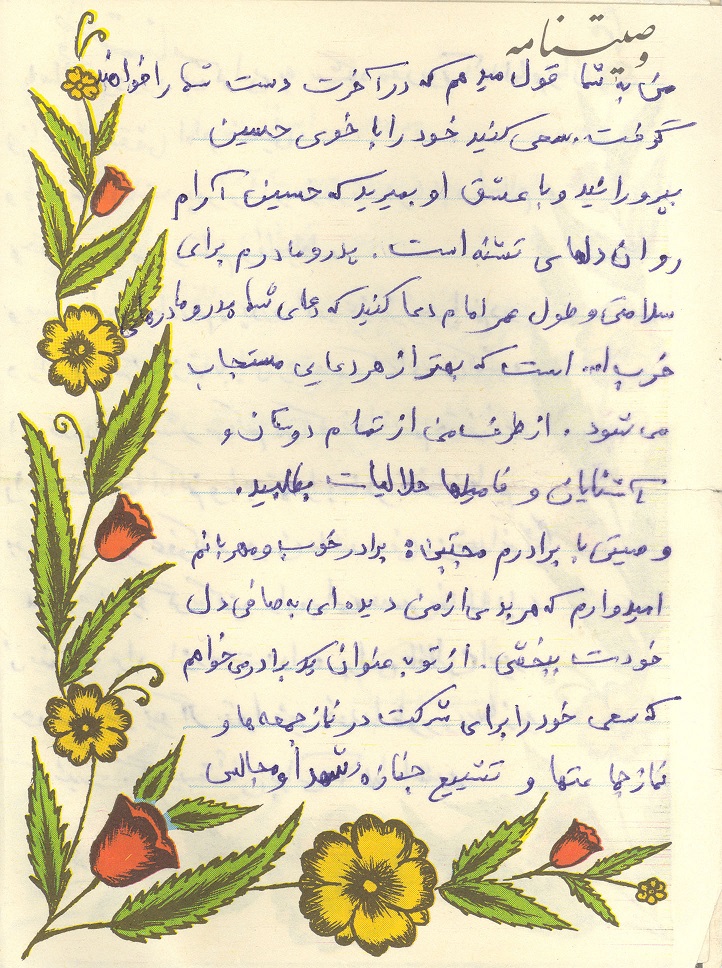 وصیتنامه
من به شما قول میدهم که در آخرت دست شما را خواهند
گرفت. سعی کنید خود را با خوی حسین
بپرورانید و با عشق او بمیرید که حسین آرام
روان دلهای تشنه است. پدر و مادرم برای
سلامتی و طول عمر امام دعا کنید که دعای شما پدر و مادرهای
خوب است که بهتر از هر دعایی مستجاب
می شود. از طرف من از تمام دوستان و
آشنایان و فامیلها حلالیات بطلبید.
وصیتی با برادرم مجتبی برادر خوب و مهربانم
امیدوارم که هر بدی از من دیده ای به صافی دل
خودت ببخشی. از تو به عنوان یک برادر می خواهم
که سعی خود را برای شرکت در نماز جمعه ها و
نماز جماعتها و تشییع جنازه شهدا و مجالس